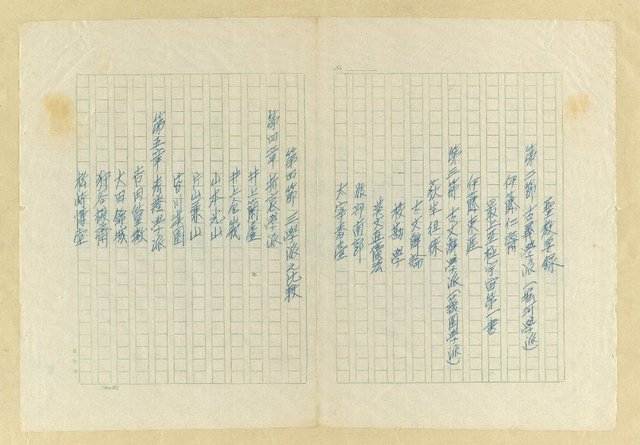 聖教要録
第二節 古義學派(堀河學派)
伊藤仁齋
最上至極宇宙第一書
伊藤東涯
第三節 古文辭學派(蘐園學派)
荻生徂徠
古文辭論
校勘學
服部南郭
太宰春臺
第四節 三學派之比較
第四章 折衷學派
井上蘭臺
井上金峨
山本北山
片山兼山
皆川淇園
第五章 考證學派
吉田篁墩
大田錦城
狩谷棭齋
松崎慊堂